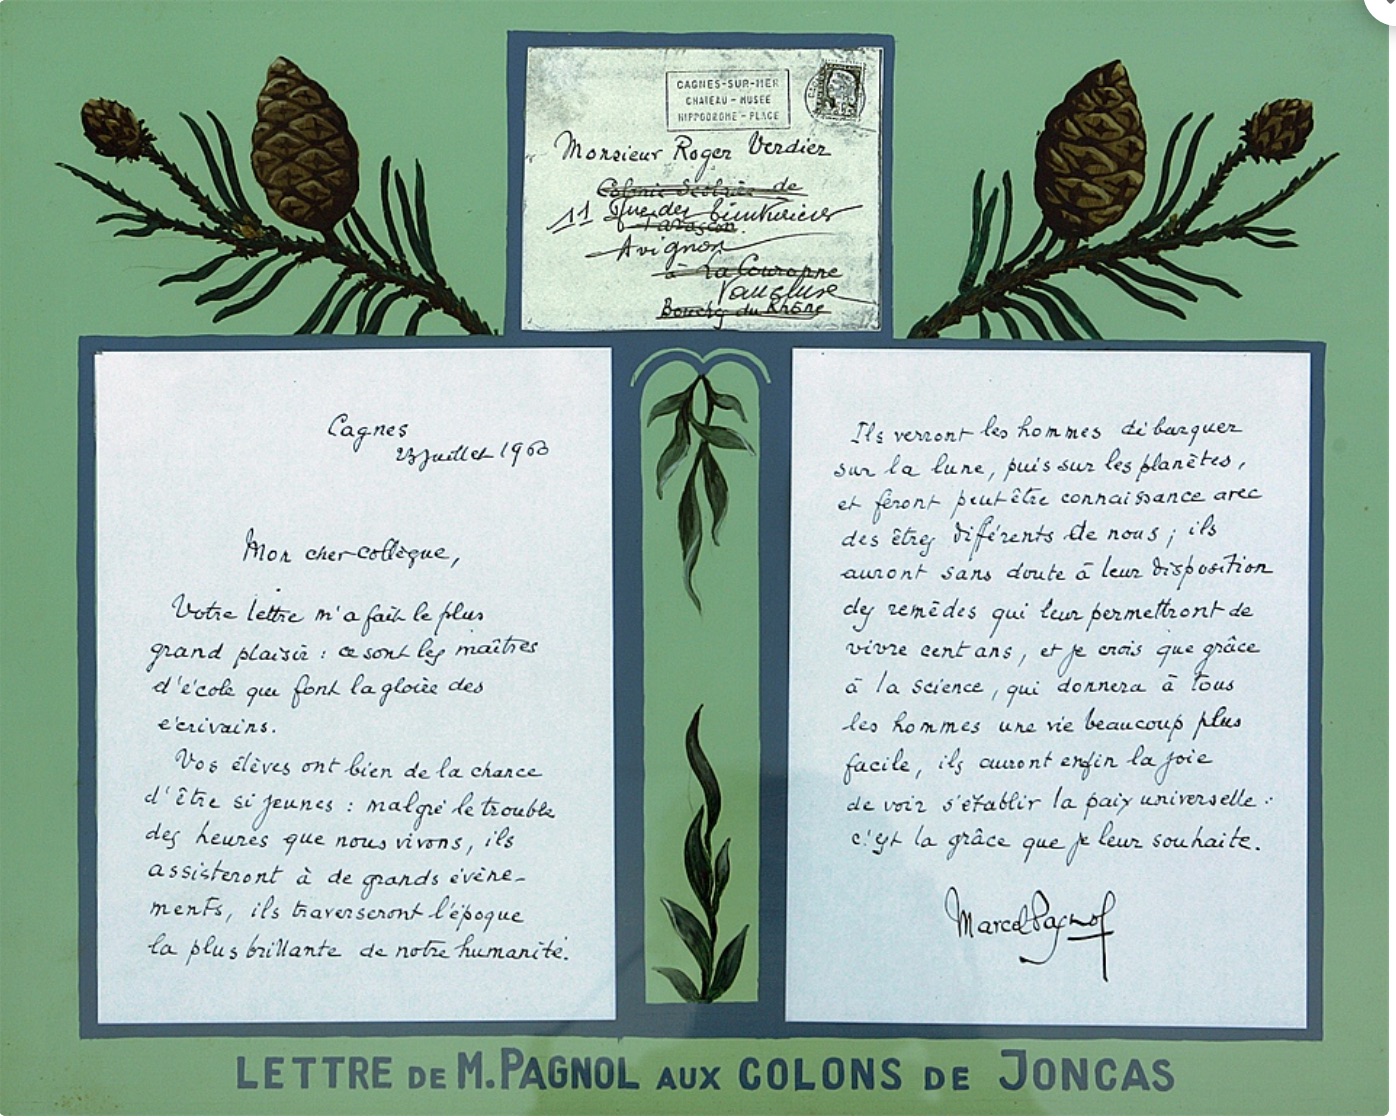 CAGNES-SUR-MER
CHATEAU - MUSEE
HIPPODROME - PLAGE
Monsieur Roger Verdier
Colonie Scolaire de
11 Rue des Teinturiers
Tarascon
Avignon
à La Couronne
Vaucluse
Bouches du Rhône
Cagnes
23 juillet 1960
Mon cher collègue,
Votre lettre m'a fait le plus
grand plaisir : ce sont les maîtres
d'école qui font la gloire des
écrivains.
Vos élèves ont bien de la chance
d'être si jeunes : malgré le trouble
des heures que nous vivons, ils
assisteront à de grands évène-
ments, ils traverseront l'époque
la plus brillante de notre humanité.
Ils verront les hommes débarquer
sur la lune, puis sur les planètes,
et feront peut être connaissance avec
des êtres différents de nous ; ils
auront sans doute à leur disposition
des remèdes qui leur permettront de
vivre cent ans, et je crois que grâce
à la science, qui donnera à tous
les hommes une vie beaucoup plus
facile, ils auront enfin la joie
de voir s'établir la paix universelle :
c'est la grâce que je leur souhaite.
Marcel Pagnol
LETTRE DE M. PAGNOL AUX COLONS DE JONCAS